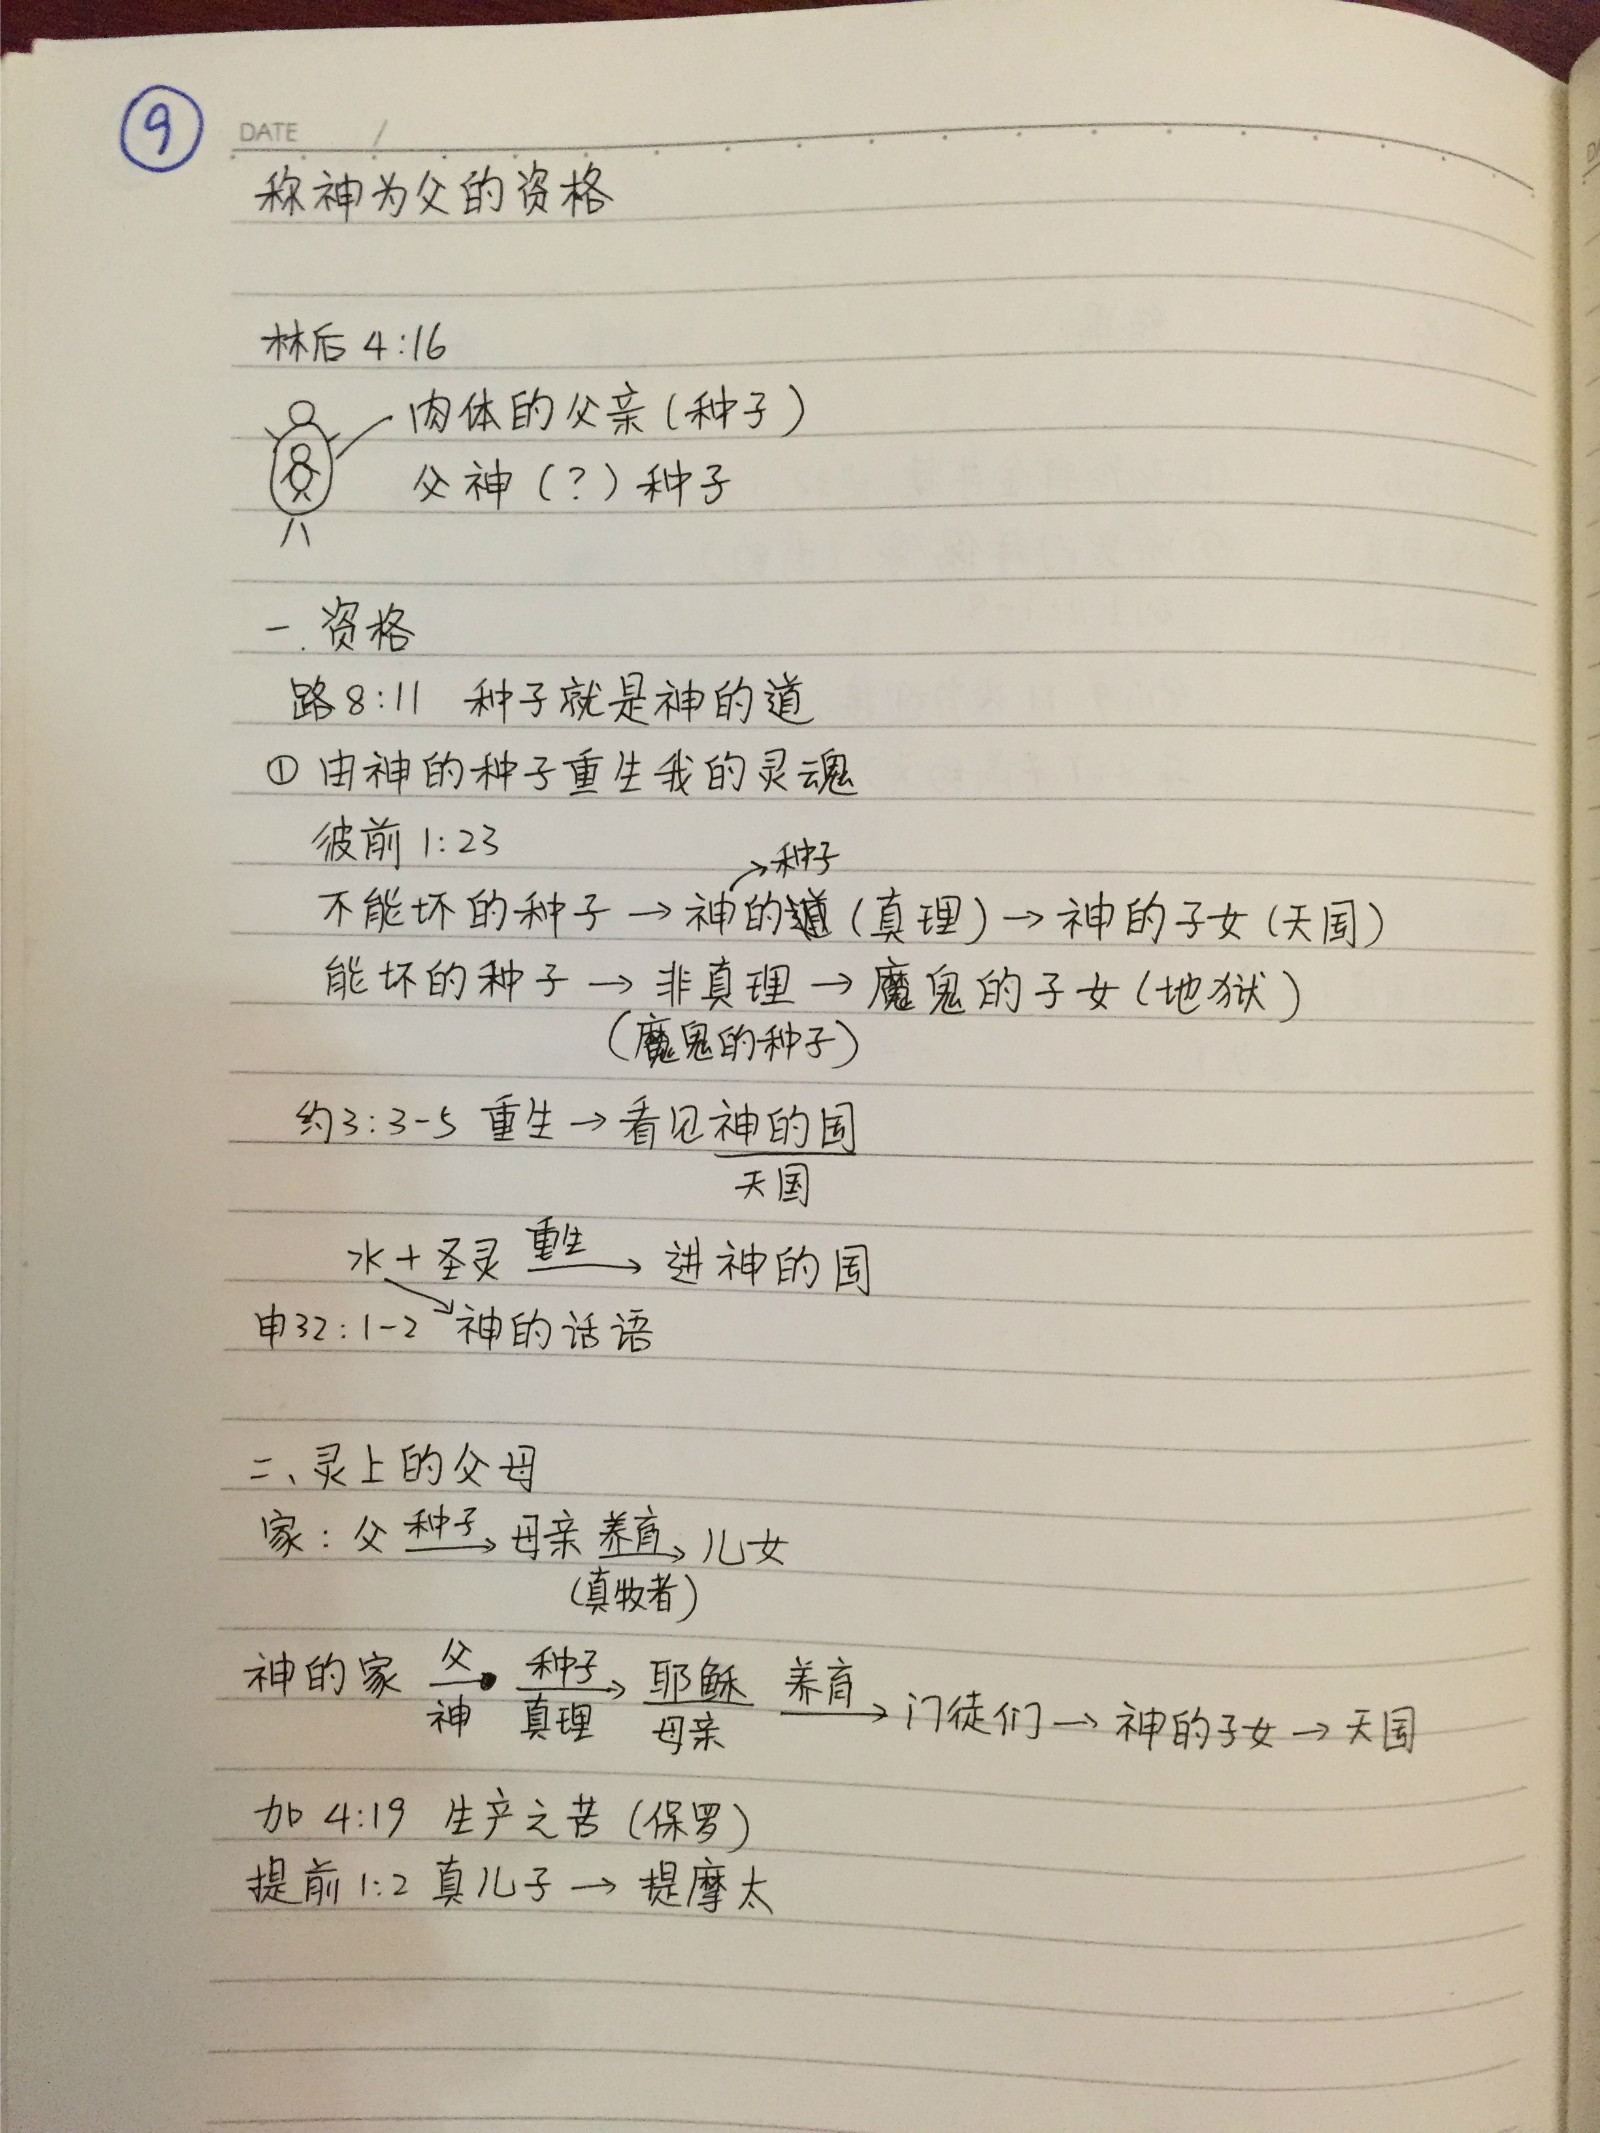 9
DATE /
称神为父的资格
林后 4:16
肉体的父亲(种子)
父神(?)种子
一.资格
路8:11 种子就是神的道
① 由神的种子重生我的灵魂
彼前1:23
种子
不能坏的种子→神的道(真理)→神的子女(天国)
能坏的种子→非真理→魔鬼的子女(地狱)
(魔鬼的种子)
约3:3-5 重生→看见神的国
天国
水+圣灵 重生→ 进神的国
申32:1-2 神的话语
二、灵上的父母
家:父 种子→ 母亲 养育→ 儿女
(真牧者)
神的家 父 种子→ 耶稣 养育→ 门徒们→神的子女→天国
神 真理 母亲
加 4:19 生产之苦(保罗)
提前1:2 真儿子→提摩太